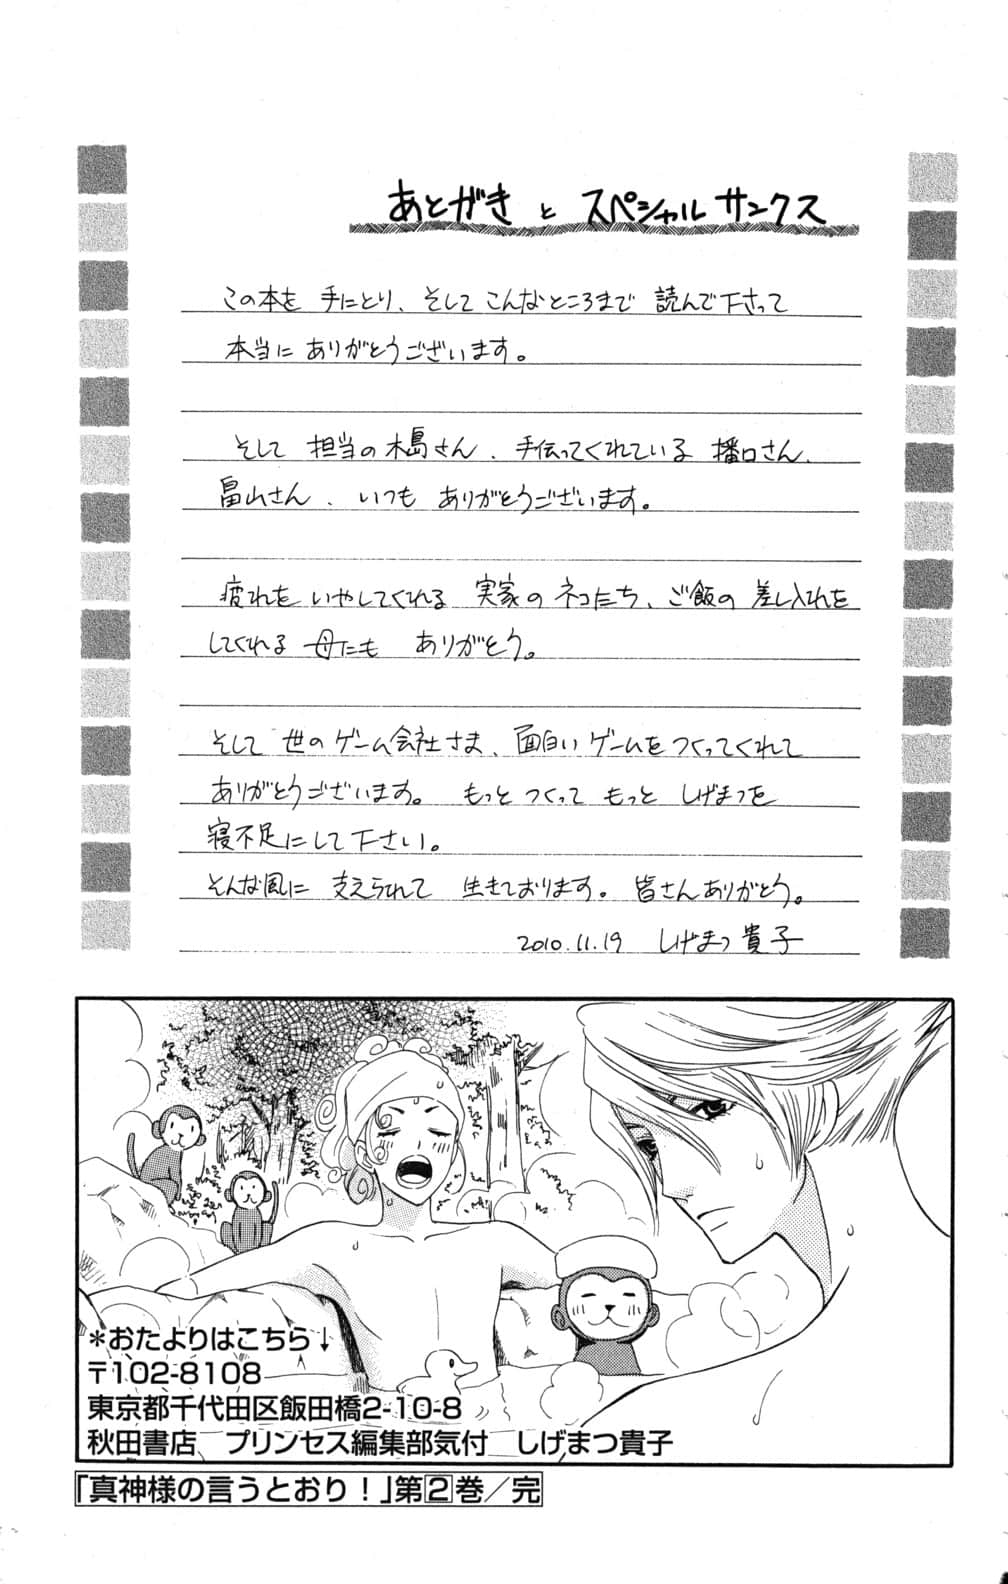 あとがき と スペシャル サンクス
この本を 手にとり、そして こんなところまで 読んで下さって
本当に ありがとうございます。
そして 担当の木島さん、手伝ってくれている 播口さん、
畠山さん、いつも ありがとうございます。
疲れを いやしてくれる 実家の ネコたち、ご飯の 差し入れを
してくれる 母にも ありがとう。
そして 世のゲーム会社さま、面白いゲームをつくってくれて
ありがとうございます。 もっと つくって もっと しげまつを
寝不足にして下さい。
そんな風に 支えられて 生きております。皆さんありがとう。
2010.11.19 しげまつ貴子
*おたよりはこちら↓
〒102-8108
東京都千代田区飯田橋2-10-8
秋田書店 プリンセス編集部気付 しげまつ貴子
「真神様の言うとおり!」第2巻/完